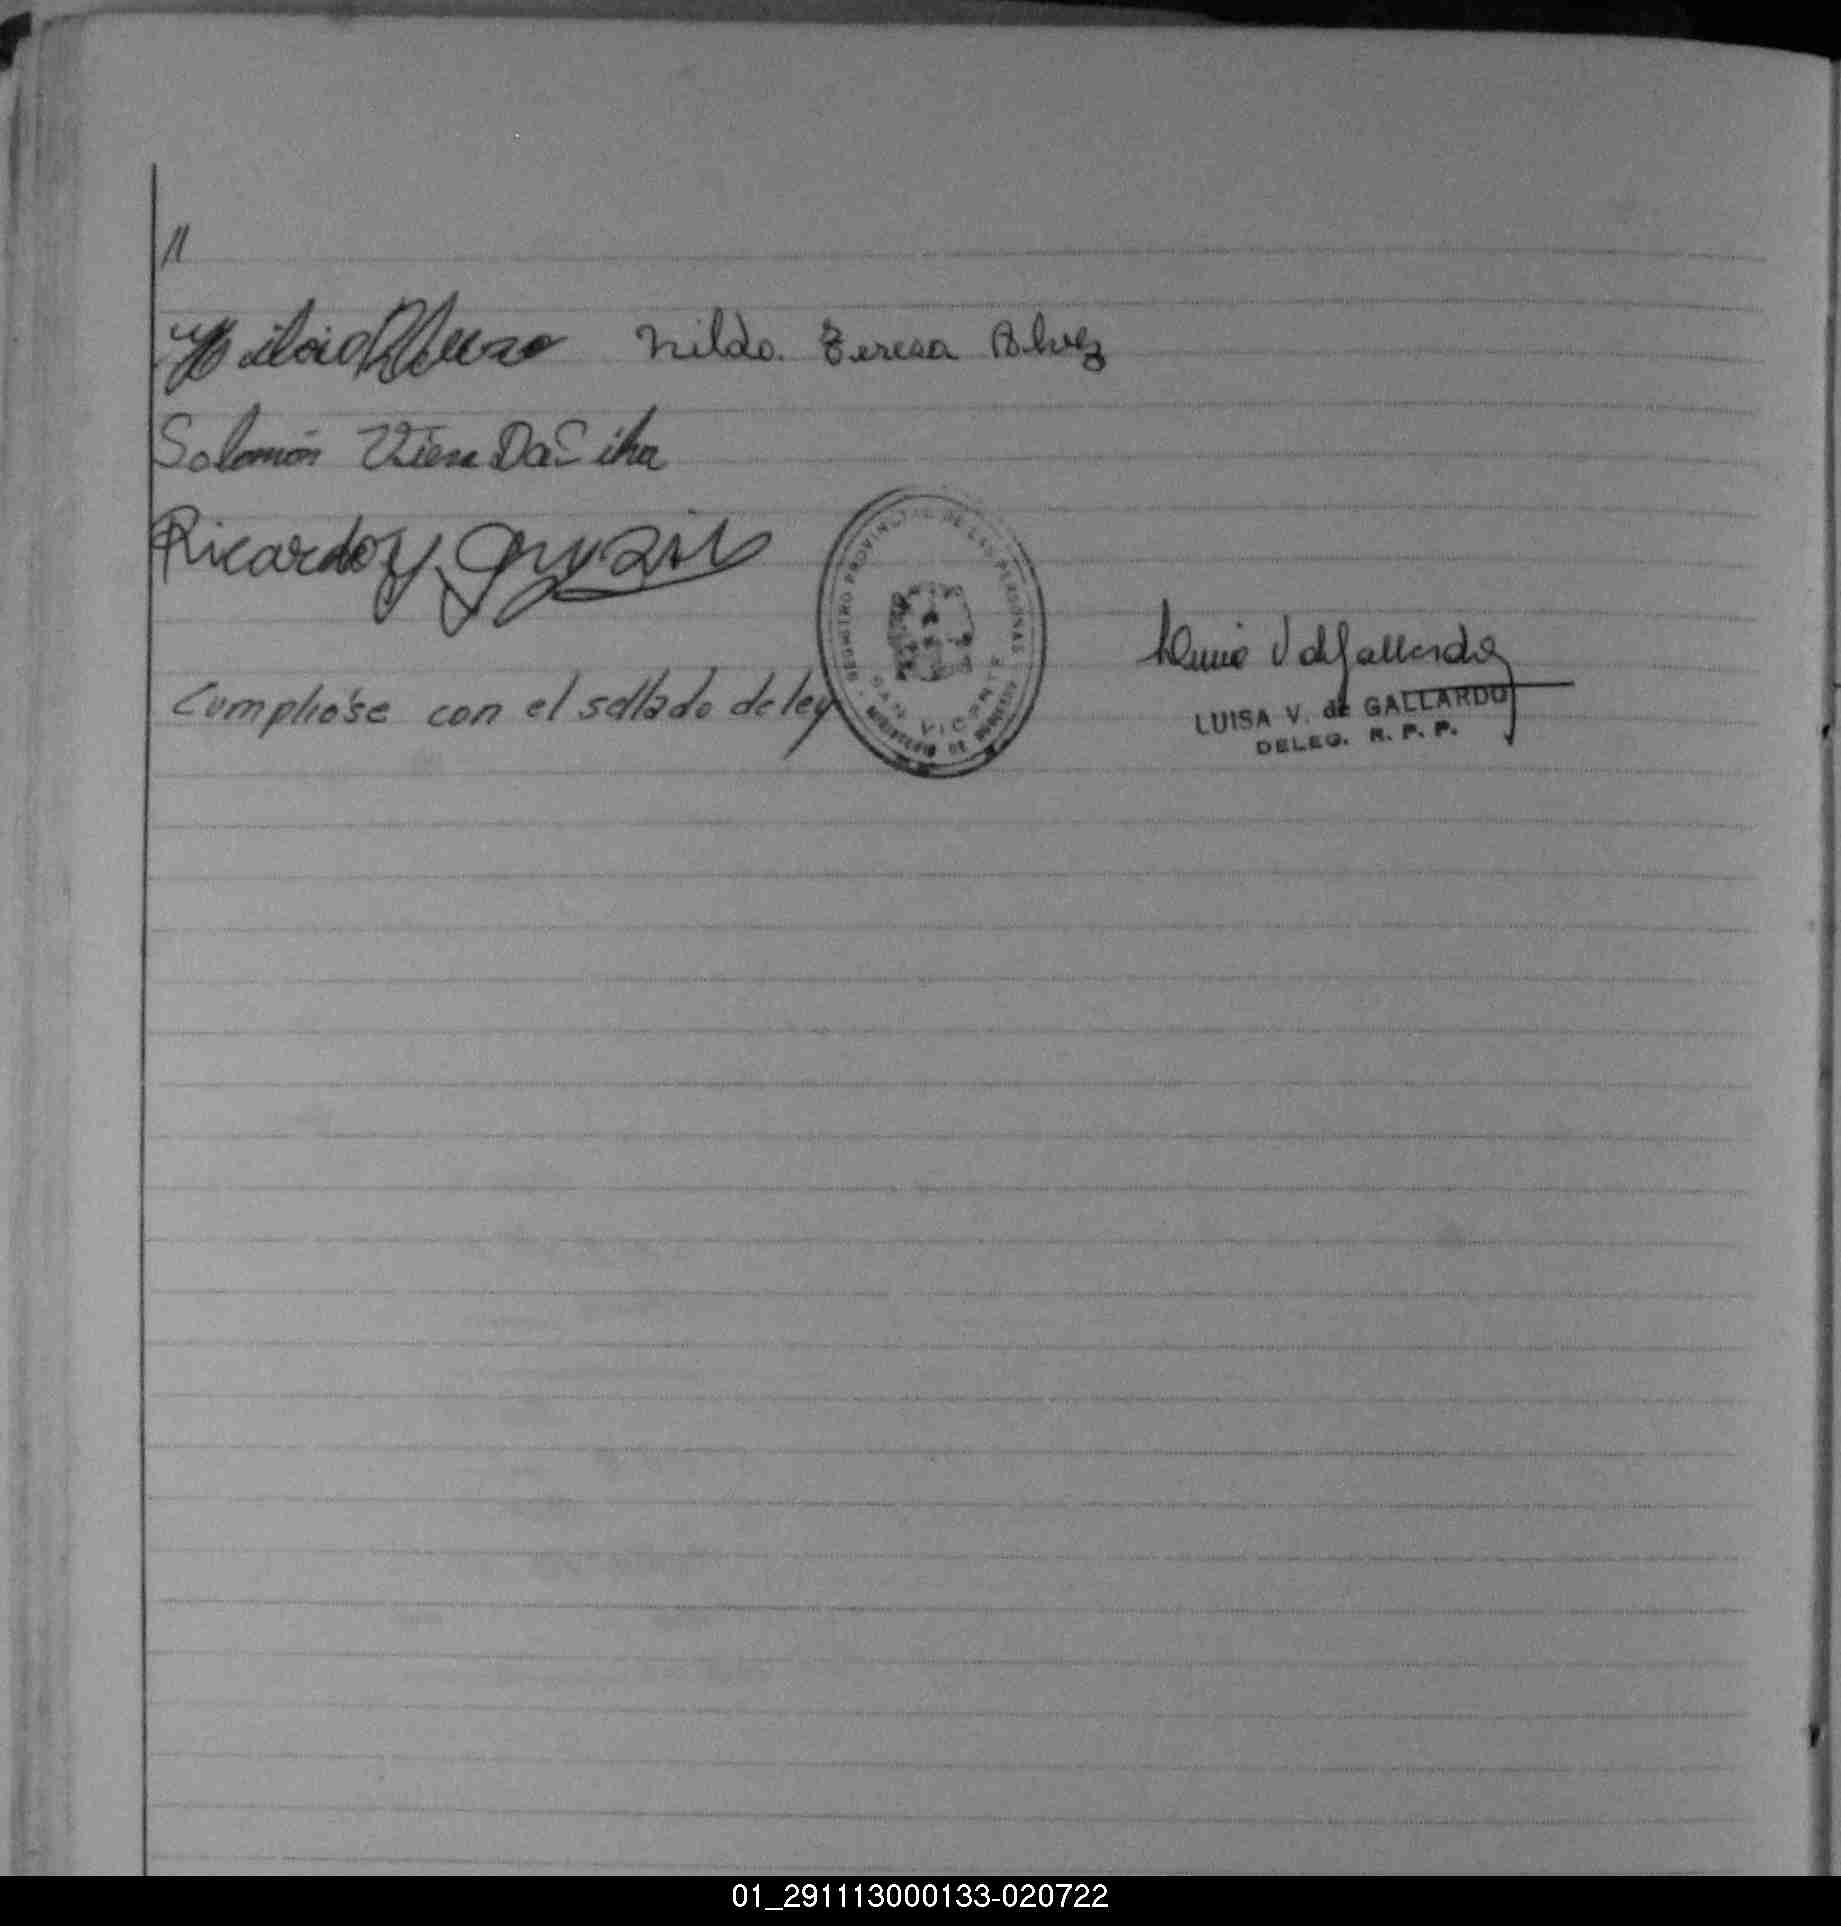 //
Nilda Teresa Alvez
Solomón Viera Da Silva
Ricardo
Cumplióse con el sellado de ley
REGISTRO PROVINCIAL DE LAS PERSONAS
SAN VICENTE
MINISTERIO DE GOBIERNO
Luisa V de Gallardo
LUISA V. de GALLARDO
DELEG. R. P. P.
01_291113000133-020722